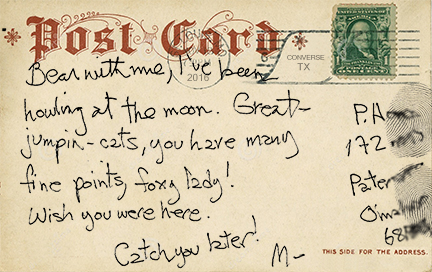 Post Card
2016
CONVERSE
TX
Bear with me, I've been
howling at the moon. Great-
jumpin-cats, you have many
fine points, foxy lady!
Wish you were here.
Catch you later!
M-
172
THIS SIDE FOR THE ADDRESS.